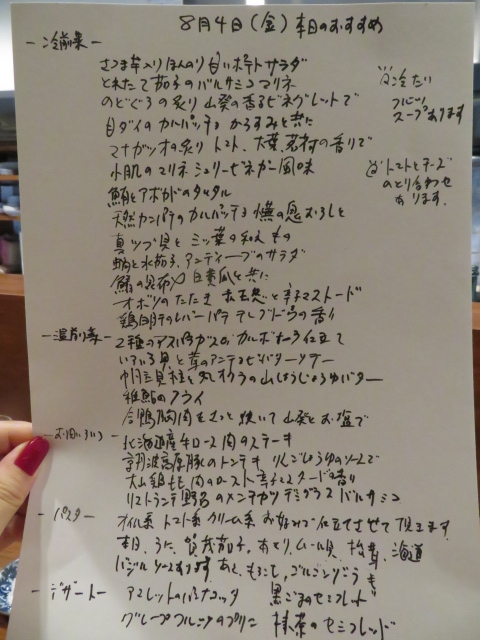 8月4日(金) 本日のおすすめ
ー冷前菜ー
さつま芋入りほんのり甘いポテトサラダ
とれたて茄子のバルサミコマリネ
のどぐろの炙り 山葵の香るビネグレットで
目ダイのカルパッチョ からすみと共に
マナガツオの炙り トマト、大葉、茗荷の香りで
小肌のマリネ シェリービネガー風味
鮪とアボカドのタルタル
天然カンパチのカルパッチョ
真ツブ貝とミツ葉の和えもの
蛸と水茄子、アンディーブのサラダ
と共に
カツオのたたき マスタード
鶏白肝のレバーパテ
冷たい
フルーツ
スープあります
トマトとチーズ
のとり合わせ
あります。
ー温前菜ー
2種のアスパラガスのカルボナーラ仕立て
いろいろ貝と茸のアンチョビバターソテー
帆立貝柱と丸オクラの山椒しょうゆバター
稚鮎のフライ
合鴨胸肉をさっと焼いて山葵とお塩で
北海道産牛ロース肉のステーキ
京丹波高原豚のトンテキ りんごしょうゆソースで
大山鶏もも肉のロースト マスタードの香り
リストランテ野呂のメンチカツ デミグラスバルサミコ
ーパスター
オイル系 トマト系 クリーム系 お好みで仕立てさせて頂きます
本日、うに、賀茂茄子、あさり、ムール貝、
バジルソースもあります あと、もろこし、ゴルゴンゾーラも
ーデザートー
パンナコッタ 黒ごまのセミフレッド
グレープフルーツのプリン 抹茶のセミフレッド